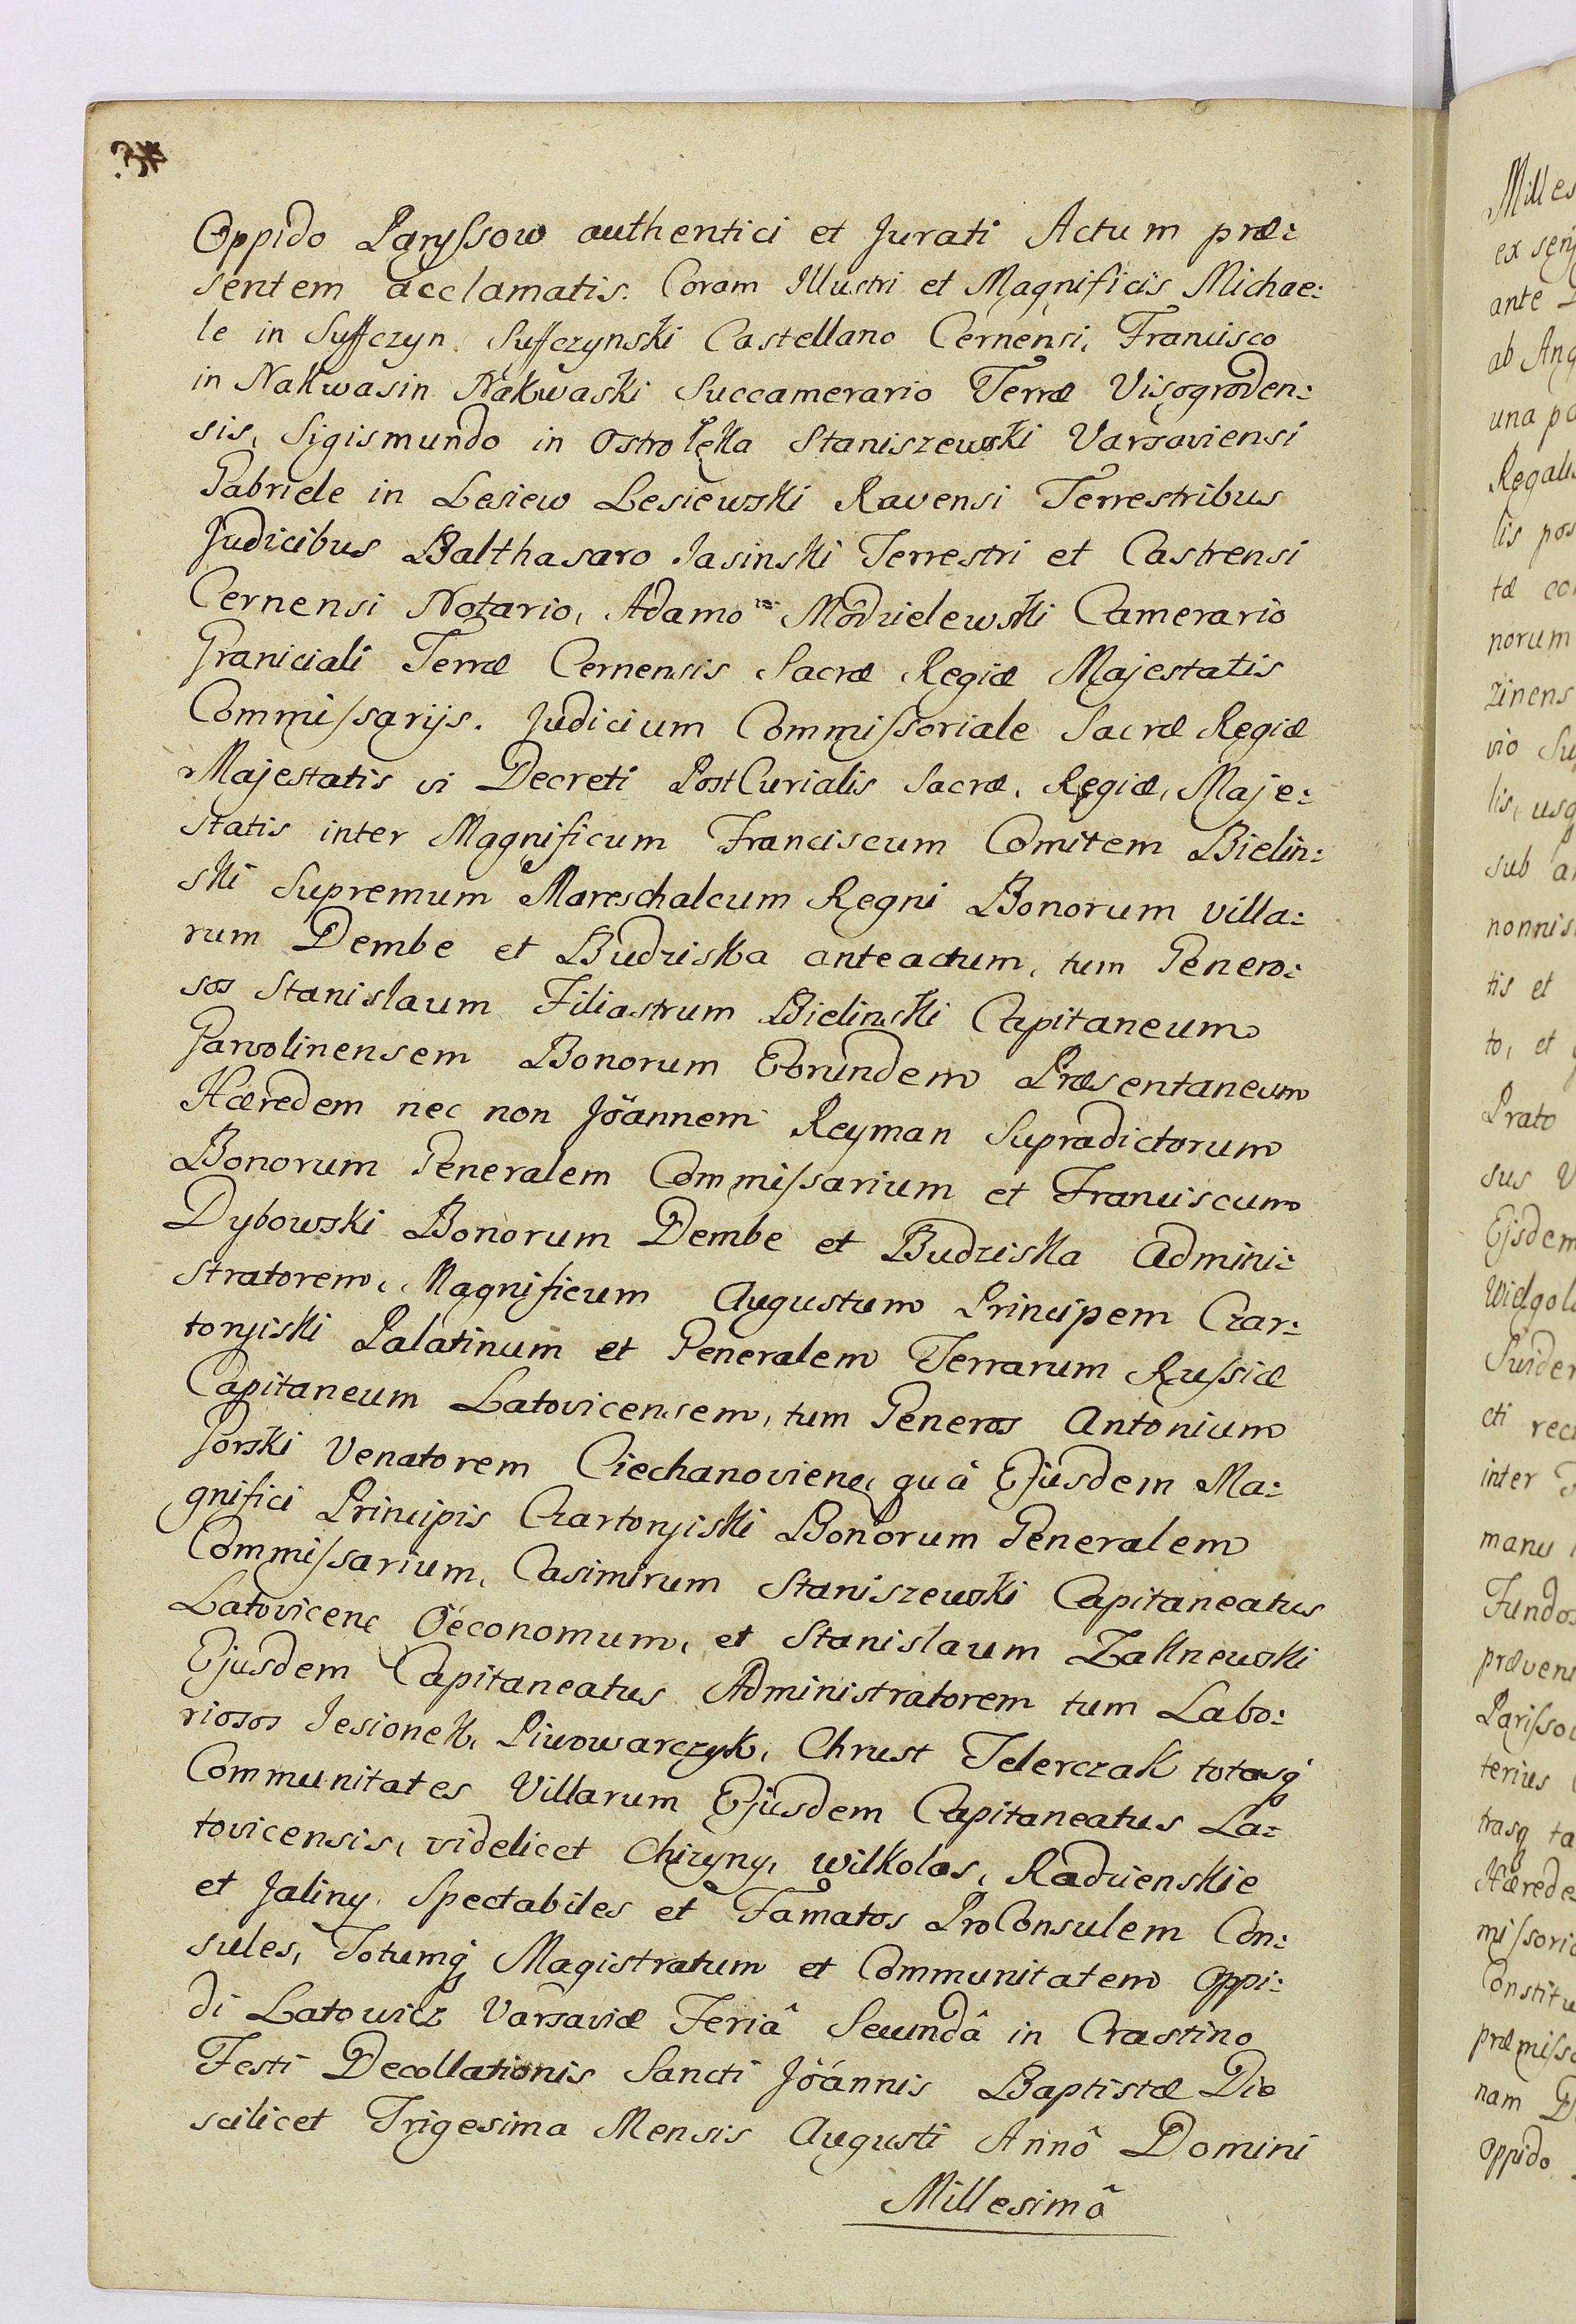 Oppido Paryssow authentici et Jurati Actum præ:
sentem acclamatis. Coram Illustri et Magnificis Michae:
le in Suffczyn Suffczynski Castellano Cernensi, Francisco
in Nakwasin Nakwaski Succamerario Terræ Visogroden:
sis, Sigismundo in Ostrołęka Staniszewski Varsaviensi
Gabriele in Lesiew Lesiewski Ravensi Terrestribus
Judicibus Balthasaro Jasinski Terrestri et Castrensi
Cernensi Notario, Adamo Modzielewski Camerario
Graniciali Terræ Cernensis Sacræ Regiæ Majestatis
Commissarijs. Judicium Commissoriale Sacræ Regiæ
Majestatis vi Decreti PostCurialis Sacræ, Regiæ, Maje:
statis inter Magnificum Franciscum Comitem Bielin:
ski Supremum Mareschalcum Regni Bonorum villa:
rum Dembe et Budziska anteactum, tum Genero:
sos Stanislaum Filiastrum Bielinski Capitaneum
Garvolinensem Bonorum Eorundem Præsentaneum
Hæredem nec non Joannem Reyman Supradictorum
Bonorum Generalem Commissarium et Franciscum
Dybowski Bonorum Dembe et Budziska Admini:
stratorem, Magnificum Augustum Principem Czar:
toryiski Palatinum et Generalem Terrarum Russiæ
Capitaneum Latovicensem, tum Generos Antonium
Gorski Venatorem Ciechanoviene, quà Ejusdem Ma:
gnifici Principis Czartoryiski Bonorum Generalem
Commissarium, Casimirum Staniszewski Capitaneatus
Latovicene Oeconomum, et Stanislaum Zaknewski
Ejusdem Capitaneatus Administratorem tum Labo:
riosos Jesionek, Piwowarczyk, Chrust Telerczak totasq
Communitates Villarum Ejusdem Capitaneatus La:
tovicensis, videlicet Chizyny, wilkolas, Radzienskie
et Jaliny, Spectabiles et Famatos ProConsulem Con:
sules, Totumq Magistratum et Communitatem Oppi:
di Latowicz Varsaviæ Feriâ Secundâ in Crastino
Festi Decollationis Sancti Joánnis Baptistæ Die
scilicet Trigesima Mensis Augusti Annô Domini
Millesimô